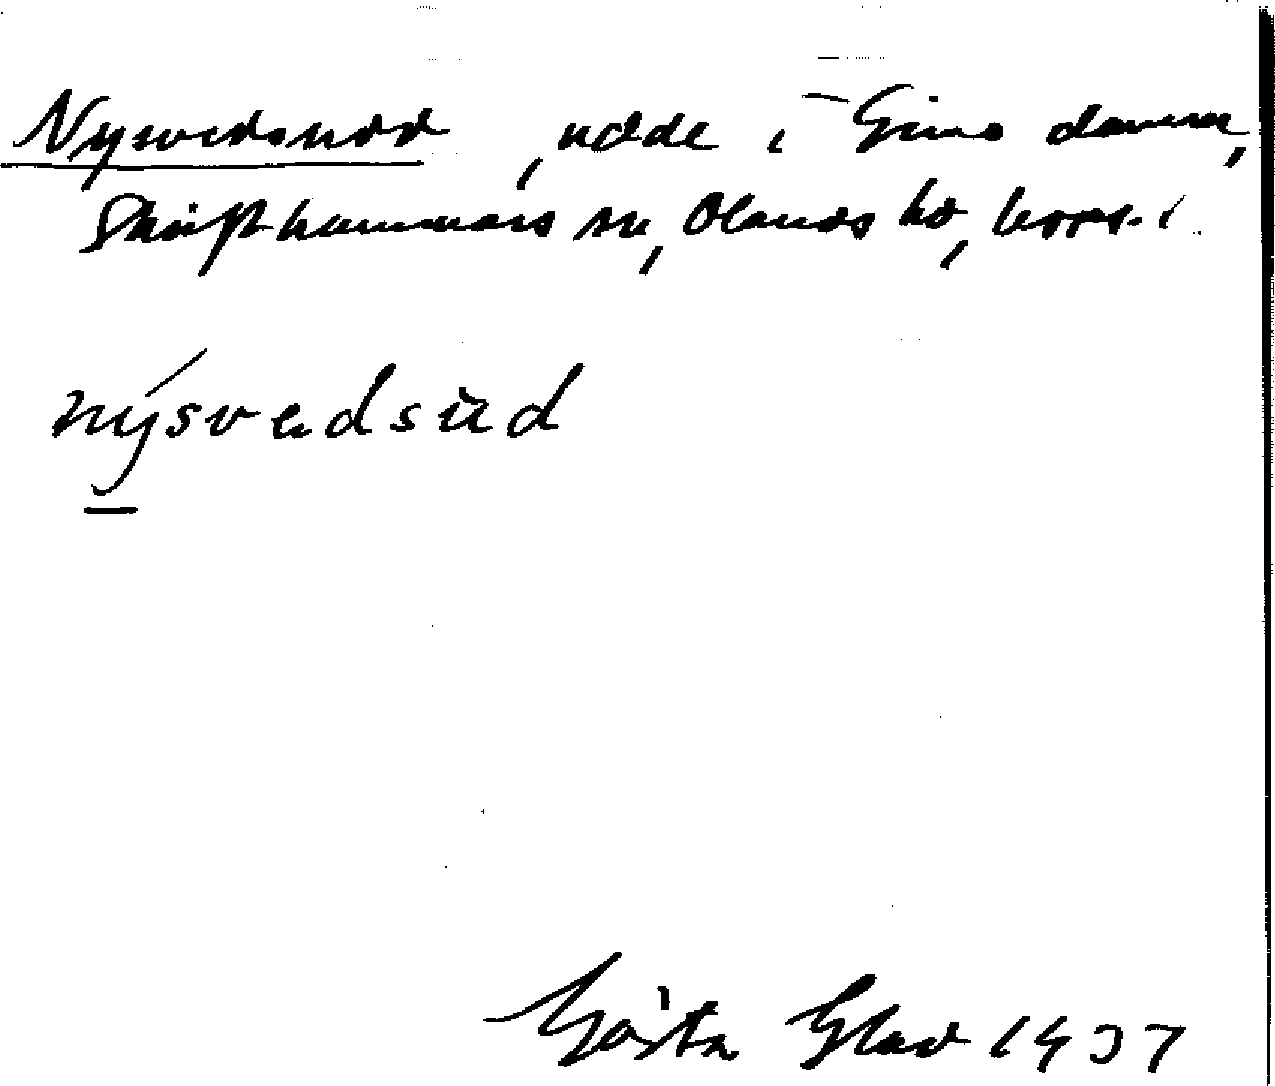 Nysvedsudd, udde i Gimo dammar,
Skäfthammars sn, Olands hd, Uppl.
nysvedsùd
Gösta Glad 1937